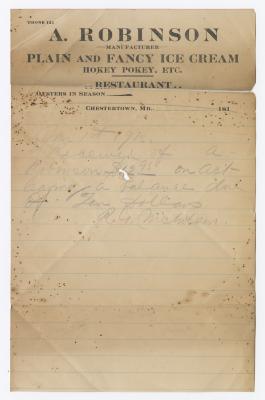 PHONE 121
A. ROBINSON
MANUFACTURER
PLAIN AND FANCY ICE CREAM
HOKEY POKEY, ETC.
..RESTAURANT..
OYSTERS IN SEASON
CHESTERTOWN, MD. 191
Received of A
Robinson on act
a balance due
of Ten Dollars